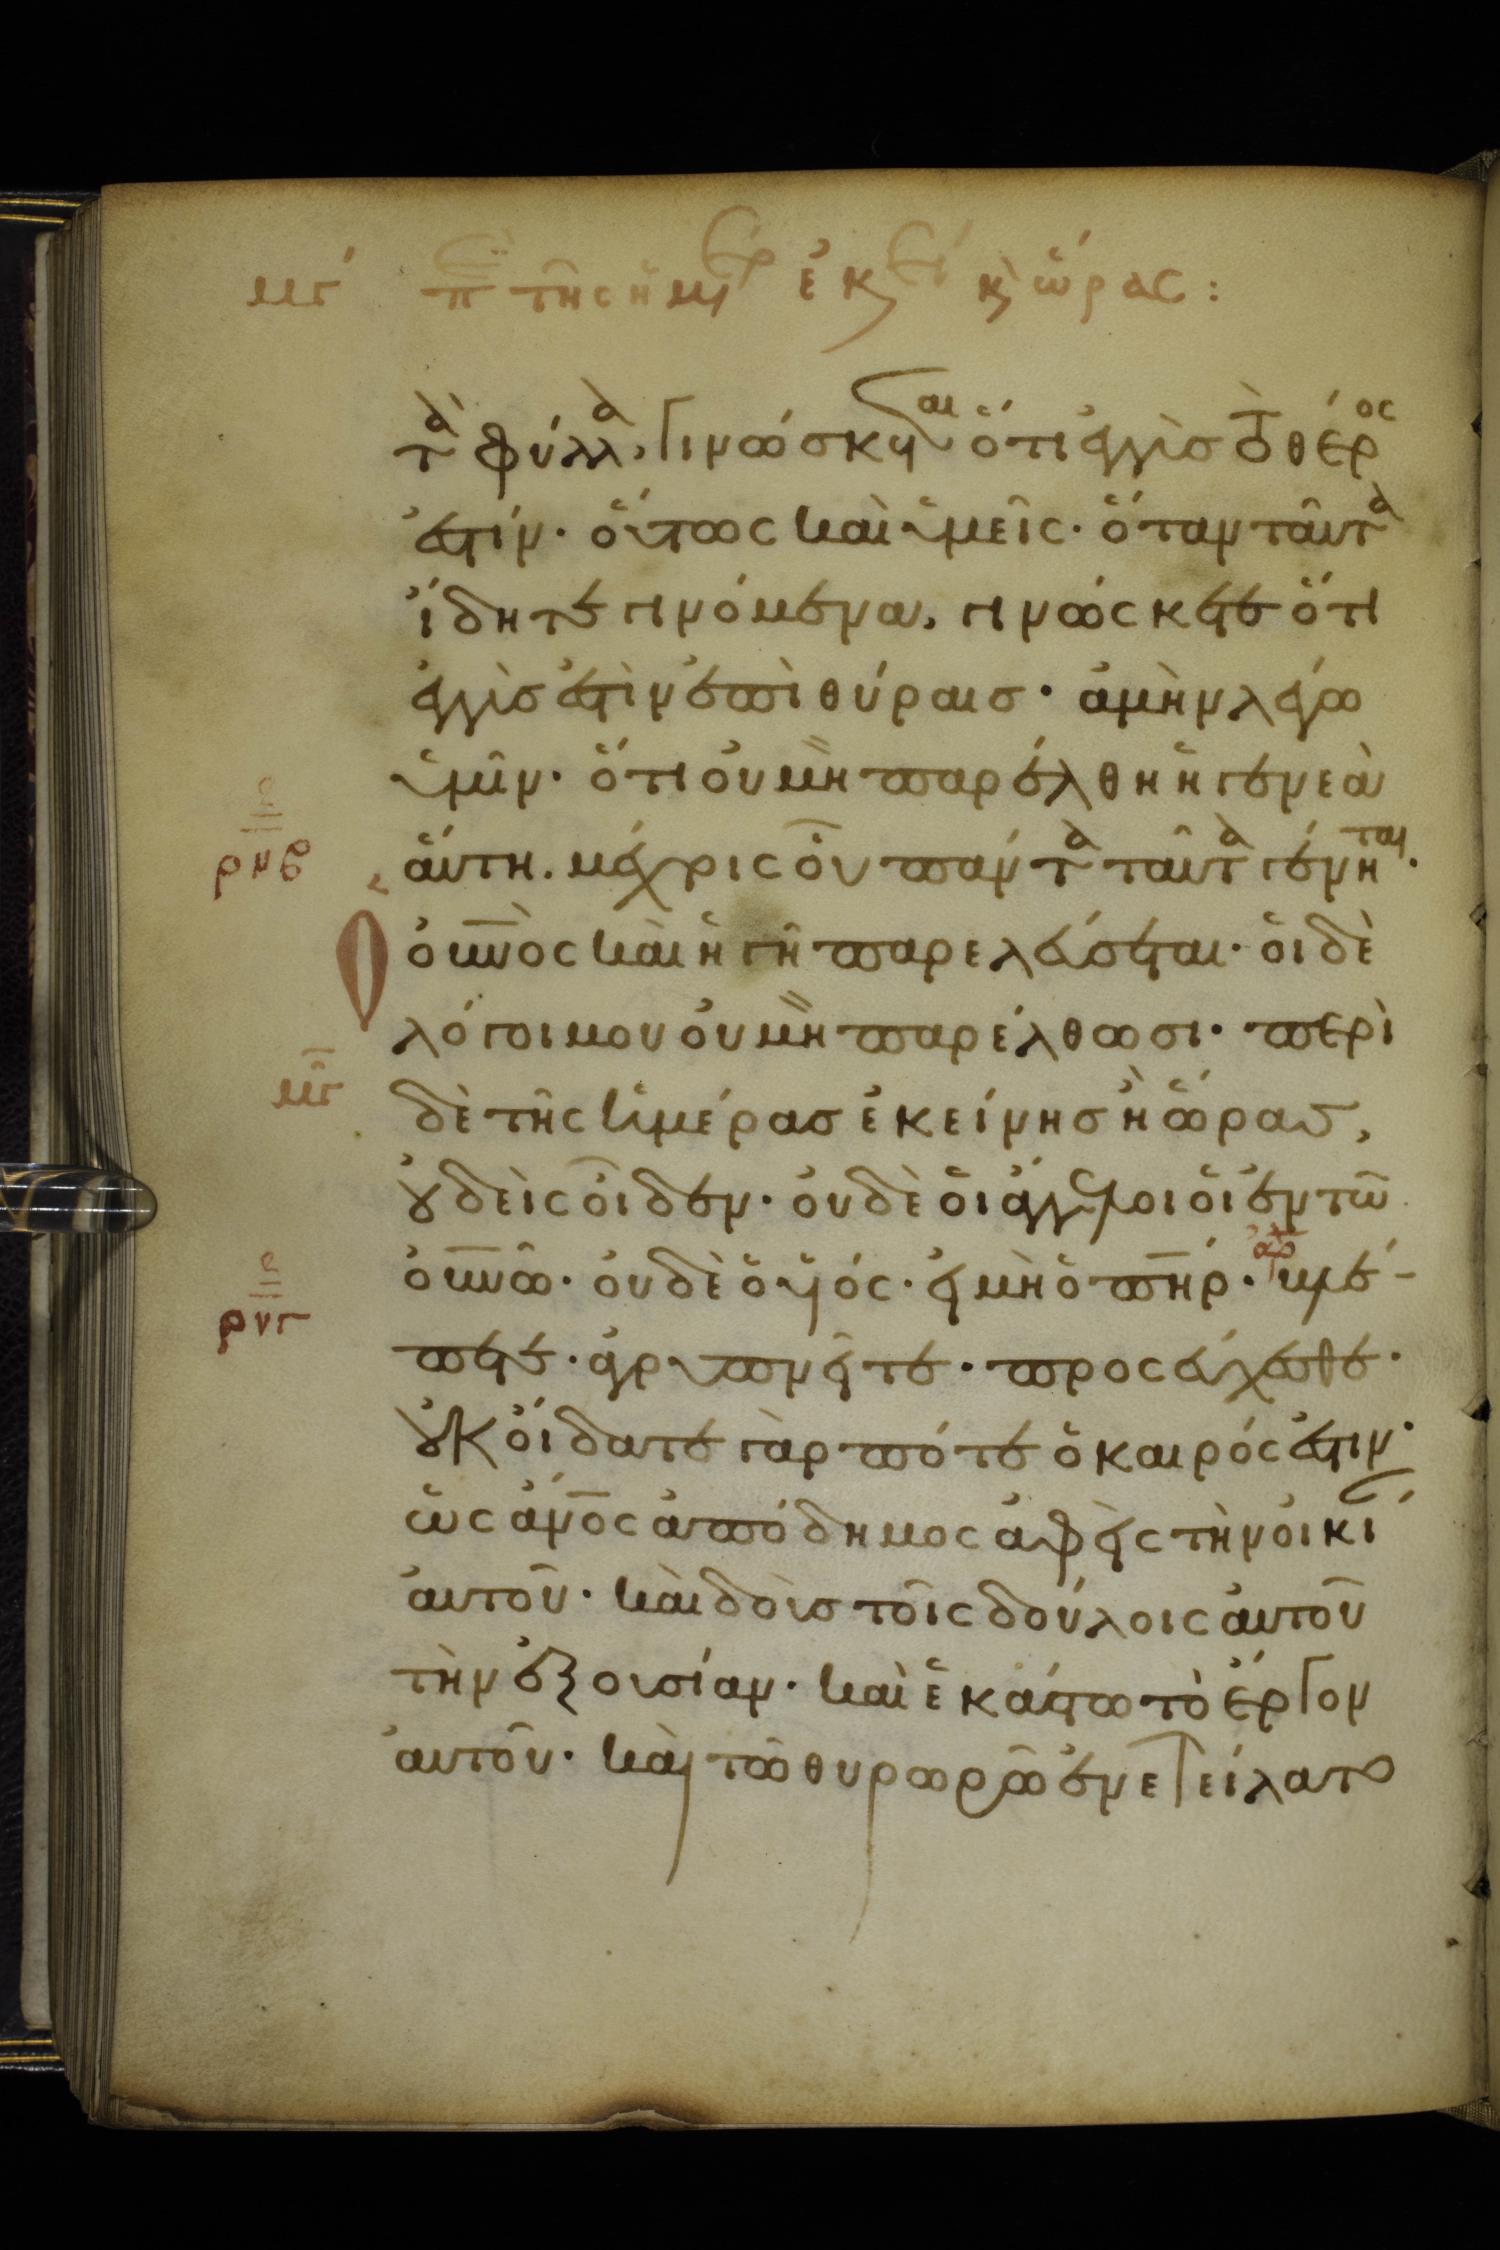 μγ΄ πε τῆς ἡμερ ἐκει κ ὥρας :
τὰ φύλλὰ, Γινώσκεται ὅτι ἐγγὺσ τὸ θέρος
ἐστίν · οὕτως καὶ ὑμεῖς · ὅταν ταῦτὰ
ἴδητε γινόμενα, γινώσκετε ὅτι
ἐγγὺσ ἐστὶν ἐπὶ θύραισ · ἀμὴν λέγω
ὑμῖν · ὅτι οὐ μὴ παρέλθη ἡ γενεὰ
ρμβ αὕτη . μέχρις οὗ πάντὰ ταῦτὰ γένηται ·
Ὁ οὐνὸς καὶ ἡ γῆ παρελεύσεται · οἱ δὲ
λόγοι μου οὐ μὴ παρέλθωσι · περὶ
μγ δὲ τῆς ἡμέρασ ἐκείνησ ἢ ὥρασ,
οὐδεὶς οἶδεν · οὐδὲ οἱ ἄγγελοι οἱ ἐν τῶ
οὐνῶ · οὐδὲ ὁ ὑιός · εἰ μὴ ὁ πηρ · αρ βλέ-
ρνγ πετε · ἀγρυπνεῖτε · προσεύχεσθε ·
οὐκ οἴδατε γὰρ πότε ὁ καιρός ἐστιν ·
ὡς ἄνος ἀπόδημος ἀφεὶς τὴν οἰκί
ἀυτοῦ · καὶ δοὺσ τοῖς δούλοις ἀυτοῦ
τὴν ἐξουσίαν · καὶ ἑκάστω τὸ ἔργον
ἀυτοῦ · καὶ τῶ θυρωρῶ ἐνετείλατο